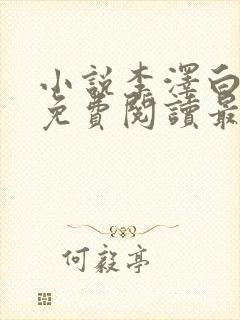 小說李澤白
免費閱讀最
何毅亭